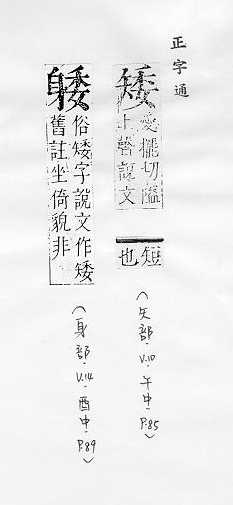 正字通
矮
愛擺切隘
上聲說文
短
也
(矢部.V.10.午中.P.85)
俗矮字說文作矮
舊註坐倚貌非
(身部.V.14.酉中.P.89)